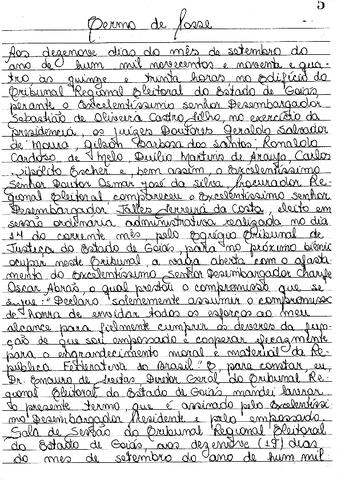 5
Termo de Posse
Aos dezenove dias do mês de setembro do
ano de hum mil novecentos e noventa e qua-
tro às quinze e trinta horas no Edifício do
Tribunal Regional Eleitoral do Estado de Goiás,
perante o Excelentíssimo senhor Desembargador
Sebastião de Oliveira Castro Filho, no exercício da
presidência, os juízes Doutores Geraldo Salvador
de Moura, Gilson Barbosa dos Santos, Ronaldo
Cardoso de Melo, Duílio Martins de Araujo, Carlos
Hipólito Escher e bem assim, o Excelentíssimo
Senhor Doutor Osmar José da Silva, Procurador Re-
gional Eleitoral, compareceu o Excelentíssimo senhor
Desembargador Jalles Ferreira da Costa, eleito em
sessão ordinária administrativa realizada no dia
14 do corrente mês pelo Egrégio Tribunal de
Justiça do Estado de Goiás, para no próximo biênio
ocupar neste Tribunal a vaga aberta com o afasta-
mento do Excelentíssimo Senhor Desembargador Charife
Oscar Abrão, o qual prestou o compromisso que se
segue: "Declaro solenemente assumir o compromisso
de honra de envidar todos os esforços ao meu
alcance para fielmente cumprir os deveres da fun-
ção de que sou empossado e cooperar eficazmente
para o engrandecimento moral e material da Re-
pública Federativa do Brasil" E, para constar eu,
Dr. de Freitas, Diretor Geral do Tribunal Re-
gional Eleitoral do Estado de Goiás, mandei lavrar
o presente termo que é assinado pelo Excelentíssi-
mo Desembargador Presidente e pelo empossado.
Sala de Sessão do Tribunal Regional Eleitoral
do Estado de Goiás, aos dezenove (19) dias
do mês de setembro do ano de hum mil